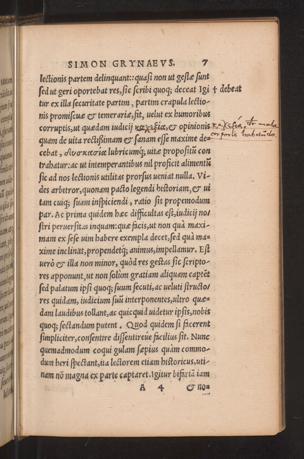 SIMON GRYNAEVS. 7
lectionis partem delinquunt: quasi non ut gestæ sunt
sed ut geri oportebat res, sic scribi quoq; deceat Igi † debeat
tur ex illa securitate partim, partim crapula lectio-
nis promiscuæ & temerariæ, fit, uelut ex humoribus
corruptis, ut quædam iudicij καχεξία, & opinionis
quam de uita rectissimam & sanam esse maxime de-
cebat, lubricumq; uitæ propositũ con-
trahatur: ac ut intemperantibus nil proficit alimentũ
sic ad nos lectionis utilitas prorsus ueniat nulla. Vi-
des arbitror, quonam pacto legendi historiam, & ui
tam cuiq; suam inspiciendi, ratio sit propemodum
par. Ac prima quidem hæc difficultas est, iudicij nos
stri peruersitas inquam: quæ facit, ut non quà maxi-
mam ex sese uim habere exempla decet, sed quà ma-
xime inclinat, propendetq; animus, impellamur. Est
uerò & illa non minor, quòd res gestas sic scripto-
res apponunt, ut non solùm gratiam aliquam captẽt
sed palatum ipsi quoq; suum secuti, ac ueluti structo
res quidam, iudicium suũ interponentes, ultro quæ-
dam laudibus tollant, ac quicquid uidetur ipsis, nobis
quoq; sectandum putent. Quod quidem si ficerent
simpliciter, consentire dissentireue facilius sit. Nunc
quemadmodum coqui gulam sæpius quàm commo-
dum heri spectant, ita lectorem etiam historicus, uti-
nam nõ magna ex parte captaret. Igitur bifariã iam
A 4 & no